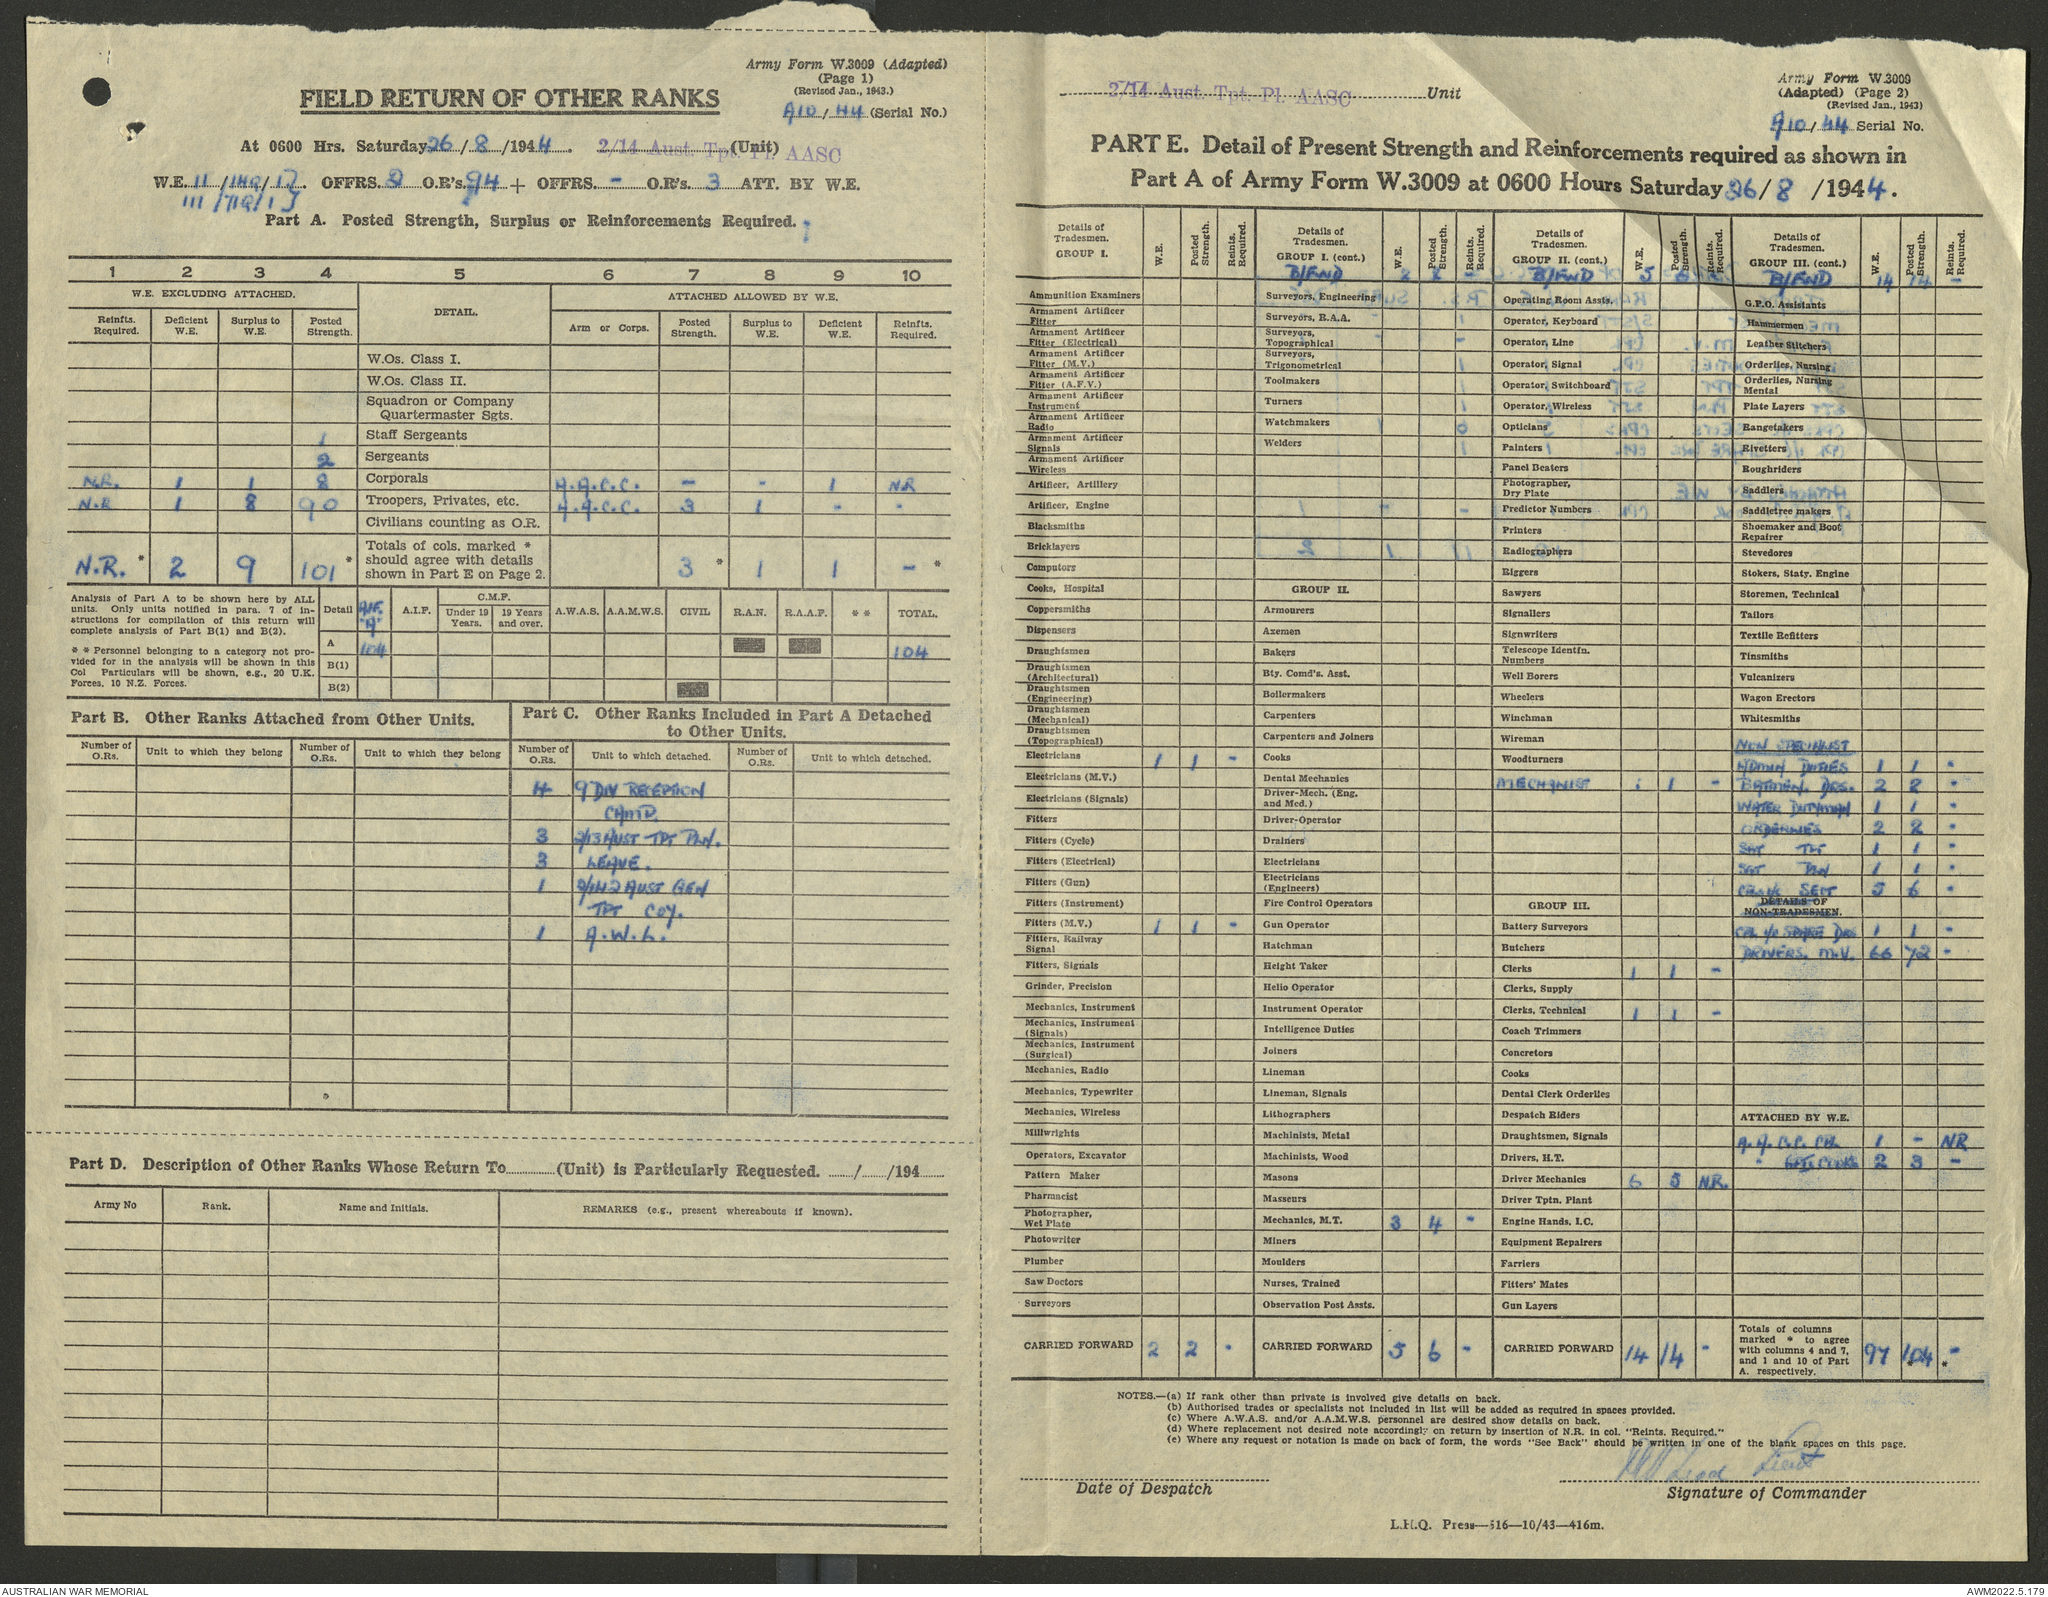 Army Form W.3009 (Adapted)
(Page 1)
(Revised Jan., 1943.)
FIELD RETURN OF OTHER RANKS
A10/44 (Serial No.)
At 0600 Hrs. Saturday 26/8/1944. 2/14 Aust. Tpt. Pl. AASC (Unit)
W.E. II/149/ OFFRS. O.R's. 94 + OFFRS. - O.R's. 3 ATT. BY W.E.
Part A. Posted Strength, Surplus or Reinforcements Required.
1 2 3 4 5 6 7 8 9 10
W.E. EXCLUDING ATTACHED. DETAIL. ATTACHED ALLOWED BY W.E.
Reinfts. Required. Deficient W.E. Surplus to W.E. Posted Strength. Arm or Corps. Posted Strength. Surplus to W.E. Deficient W.E. Reinfts. Required.
W.Os. Class I.
W.Os. Class II.
Squadron or Company
Quartermaster Sgts.
1 Staff Sergeants
2 Sergeants
N.R. 1 1 8 Corporals A.A.C.C. - - 1 N.R
N.R 1 8 90 Troopers, Privates, etc. A.A.C.C. 3 1 - -
Civilians counting as O.R.
N.R.* 2 9 101* Totals of cols. marked * should agree with details shown in Part E on Page 2. 3* 1 1 -*
Analysis of Part A to be shown here by ALL
units. Only units notified in para. 7 of in-
structions for compilation of this return will
complete analysis of Part B(1) and B(2).
* * Personnel belonging to a category not pro-
vided for in the analysis will be shown in this
Col Particulars will be shown, e.g., 20 U.K.
Forces, 10 N.Z. Forces.
Detail A.I.F. "A" A.I.F. C.M.F. Under 19 Years. 19 Years and over. A.W.A.S. A.A.M.W.S. CIVIL R.A.N. R.A.A.F. * * TOTAL.
A 104 104
B(1)
B(2)
Part B. Other Ranks Attached from Other Units.
Number of O.Rs. Unit to which they belong Number of O.Rs. Unit to which they belong
Part C. Other Ranks Included in Part A Detached
to Other Units.
Number of O.Rs. Unit to which detached. Number of O.Rs. Unit to which detached.
4 9 DIV RECEPTION
CAMP.
3 2/13 AUST TPT PLN.
3 LEAVE.
1 2/142 AUST GEN
TPT COY.
1 A.W.L.
Part D. Description of Other Ranks Whose Return To............(Unit) is Particularly Requested. ....../....../194......
Army No Rank. Name and Initials. REMARKS (e.g., present whereabouts if known).
2/14 Aust. Tpt. Pl. AASC Unit
Army Form W.3009
(Adapted) (Page 2)
(Revised Jan., 1943)
A10/44 Serial No.
PART E. Detail of Present Strength and Reinforcements required as shown in
Part A of Army Form W.3009 at 0600 Hours Saturday 26/8/1944.
Details of Tradesmen. GROUP I. W.E. Posted Strength. Reints. Required.
Ammunition Examiners
Armament Artificer Fitter
Armament Artificer Fitter (Electrical)
Armament Artificer Fitter (M.V.)
Armament Artificer Fitter (A.F.V.)
Armament Artificer Instrument
Armament Artificer Radio
Armament Artificer Signals
Armament Artificer Wireless
Artificer, Artillery
Artificer, Engine
Blacksmiths
Bricklayers
Computors
Cooks, Hospital
Coppersmiths
Dispensers
Draughtsmen
Draughtsmen (Architectural)
Draughtsmen (Engineering)
Draughtsmen (Mechanical)
Draughtsmen (Topographical)
Electricians 1 1 -
Electricians (M.V.)
Electricians (Signals)
Fitters
Fitters (Cycle)
Fitters (Electrical)
Fitters (Gun)
Fitters (Instrument)
Fitters (M.V.) 1 1 -
Fitters, Railway Signal
Fitters, Signals
Grinder, Precision
Mechanics, Instrument
Mechanics, Instrument (Signals)
Mechanics, Instrument (Surgical)
Mechanics, Radio
Mechanics, Typewriter
Mechanics, Wireless
Millwrights
Operators, Excavator
Pattern Maker
Pharmacist
Photographer, Wet Plate
Photowriter
Plumber
Saw Doctors
Surveyors
CARRIED FORWARD 2 2 -
Details of Tradesmen. GROUP I. (cont.) W.E. Posted Strength. Reints. Required.
B/FWD 2 2 -
Surveyors, Engineering
Surveyors, R.A.A.
Surveyors, Topographical
Surveyors, Trigonometrical
Toolmakers
Turners
Watchmakers
Welders
GROUP II.
Armourers
Axemen
Bakers
Bty. Comd's. Asst.
Boilermakers
Carpenters
Carpenters and Joiners
Cooks
Dental Mechanics
Driver-Mech. (Eng. and Med.)
Driver-Operator
Drainers
Electricians
Electricians (Engineers)
Fire Control Operators
Gun Operator
Hatchman
Height Taker
Helio Operator
Instrument Operator
Intelligence Duties
Joiners
Lineman
Lineman, Signals
Lithographers
Machinists, Metal
Machinists, Wood
Masons
Masseurs
Mechanics, M.T. 3 4 -
Miners
Moulders
Nurses, Trained
Observation Post Assts.
CARRIED FORWARD 5 6 -
Details of Tradesmen. GROUP II. (cont.) W.E. Posted Strength. Reints. Required.
B/FWD 5 6 -
Operating Room Assts.
Operator, Keyboard
Operator, Line
Operator, Signal
Operator, Switchboard
Operator, Wireless
Opticians
Painters
Panel Beaters
Photographer, Dry Plate
Predictor Numbers
Printers
Radiographers
Riggers
Sawyers
Signallers
Signwriters
Telescope Identfn. Numbers
Well Borers
Wheelers
Winchman
Wireman
Woodturners
MECHANIST 1 1 -
GROUP III.
Battery Surveyors
Butchers
Clerks 1 1 -
Clerks, Supply
Clerks, Technical 1 1 -
Coach Trimmers
Concretors
Cooks
Dental Clerk Orderlies
Despatch Riders
Draughtsmen, Signals
Drivers, H.T.
Driver Mechanics 6 5 N.R.
Driver Tptn. Plant
Engine Hands, I.C.
Equipment Repairers
Farriers
Fitters' Mates
Gun Layers
CARRIED FORWARD 14 14 -
Details of Tradesmen. GROUP III. (cont.) W.E. Posted Strength. Reints. Required.
B/FWD 14 14 -
G.P.O. Assistants
Hammermen
Leather Stitchers
Orderlies, Nursing
Orderlies, Nursing Mental
Plate Layers
Rangetakers
Rivetters
Roughriders
Saddlers
Saddletree makers
Shoemaker and Boot Repairer
Stevedores
Stokers, Staty. Engine
Storemen, Technical
Tailors
Textile Refitters
Tinsmiths
Vulcanizers
Wagon Erectors
Whitesmiths
NON SPECIALIST
ADMIN DUTIES 1 1 -
BATMEN. DRS. 2 2 -
WATER DUTYMAN 1 1 -
ORDERLIES 2 2 -
SGT TPT 1 1 -
SGT PLN 1 1 -
CPLS i/c SECT 5 6 -
DETAILS OF
NON-TRADESMEN.
CPL i/c SPARE DRS 1 1 -
DRIVERS. M.V. 66 72 -
ATTACHED BY W.E.
A.A.C.C. CPL 1 - NR
" PTE COOKS 2 3 -
Totals of columns marked * to agree with columns 4 and 7, and 1 and 10 of Part A. respectively. 97 104* -*
NOTES.—(a) If rank other than private is involved give details on back.
(b) Authorised trades or specialists not included in list will be added as required in spaces provided.
(c) Where A.W.A.S. and/or A.A.M.W.S. personnel are desired show details on back.
(d) Where replacement not desired note accordingly on return by insertion of N.R. in col. "Reints. Required."
(e) Where any request or notation is made on back of form, the words "See Back" should be written in one of the blank spaces on this page.
Lieut
Date of Despatch
Signature of Commander
L.H.Q. Press—516—10/43—416m.
AUSTRALIAN WAR MEMORIAL
AWM2022.5.179